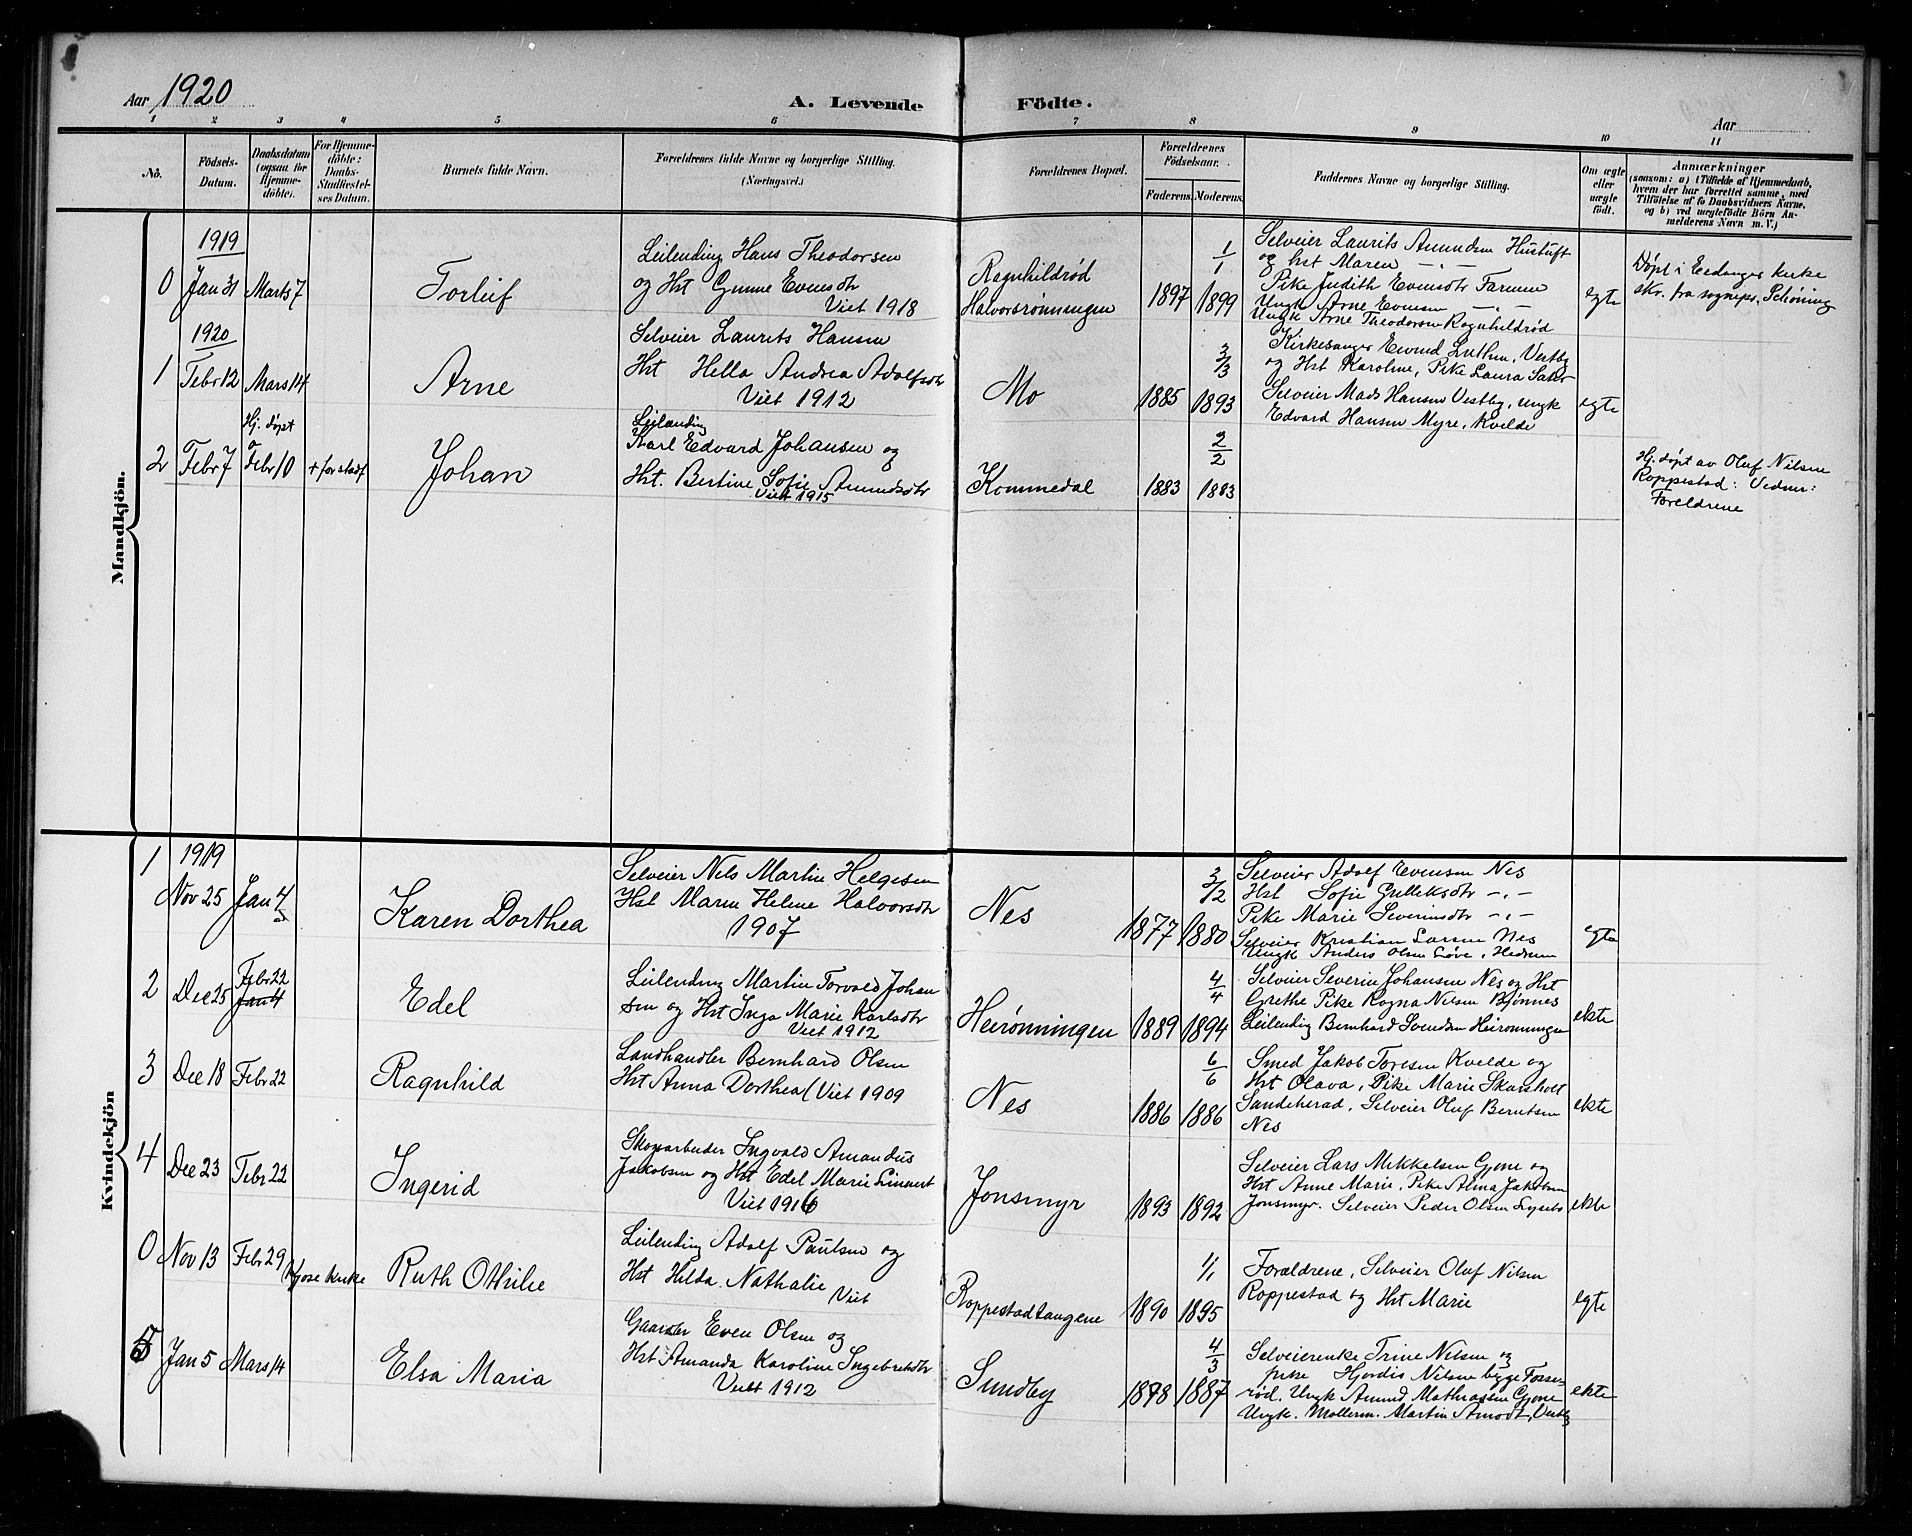 Aar 1920
A. Levende Födte.
Aar
1 2 3 4 5 6 7 8 9 10 11
No.
Födsels-Datum.
Daabsdatum (ogsaa for Hjemme-döbte).
For Hjemme-döbte: Daabs-Stadfæstel-ses Datum.
Barnets fulde Navn.
Forældrenes fulde Navne og borgerlige Stilling. (Næringsvei.)
Forældrenes Bopæl.
Forældrenes Födselsaar.
Faderens. Moderens.
Faddernes Navne og borgerlige Stilling.
Om ægte eller uægte födt.
Anmærkninger
(saasom: a) i Tilfælde af Hjemmedaab,
hvem der har forrettet samme, med
Tilföielse af to Daabsvidners Navne,
og b) ved uægtefödte Börn An-
melderens Navn m. V.)
Mandkjön.
1919
0 Jan 31 Marts 7
Torleif
Leilending Hans Theodorsen
og Hst Gunne Evensdtr
Viet 1918
Ragnhildrød
Halvorsrønningen
1897 1899
1/1
Selveier Laurits Amundsen Hustuft
og hst Maren -"-
Pike Judith Evensdtr Farmen
Ungk Arne Evensen -"-
Ungk Arne Theodorsen Ragnhildrød
egte
Døpt i Eidanger kirke
skr. fra sognepr. Schøning
1920
1 Febr 12 Mars 14
Arne
Selveier Laurits Hansen
Hst Hella Andrea Adolfsdtr
Viet 1912
Mo
1885 1893
3/3
Kirkesanger Eivind Luthen, Vestby
og Hst Karoline, Pike Laura
Selveier Mads Hansen Vestby, ungk
Edvard Hansen Myre, Kvelde
egte
2 Febr 7
Hj. døpt
Febr 10
+ før stadf
Johan
Leilending
Karl Edvard Johansen og
Hst. Bertine Sofie Amundsdtr
Viet 1915
Kommedal
1883 1883
2/2
Hj. døpt av Oluf Nilsen
Roppestad: Vidner:
Foreldrene
Kvindekjön
1919
1 Nov 25 Jan 4
Karen Dorthea
Selveier Nels Martin Helgesen
Hst Maren Helene Halvorsdtr
1907
Nes
1877 1880
3/2
Selveier Adolf Evensen Nes
Hst Sofie Grelleksdtr -"-
Pike Marie Severinsdtr -"-
Selveier Kristian Larsen Nes
Ungk Anders Olsen Løve, Hedrum
egte
2 Dec 25
Febr 22
Jan 4
Edel
Leilending Martin Torvald Johan
sen og Hst Inga Marie Karlsdtr
Viet 1912
Heirønningen
1889 1894
4/4
Selveier Severin Johansen Nes og Hst
Grethe Pike Ragna Nilsen Bjønnes
Leilending Bernhard Svendsen Heirønningen
ekte
3 Dec 18 Febr 22
Ragnhild
Landhandler Bernhard Olsen
Hst Anna Dorthea (Viet 1909
Nes
1886 1886
6/6
Smed Jakob Toresen Kvelde og
Hst Olava, Pike Marie Skarsholt
Sandeherad, Selveier Oluf Berntsen
Nes
ekte
4 Dec 23 Febr 22
Ingerid
Skogarbeider Ingvald Amandus
Jakobsen og Hst Edel Marie Linnert
Viet 1916
Jonsmyr
1893 1892
Selveier Lars Mikkelsen Gjone og
Hst Anne Marie, Pike Alma Jakobsen
Jonsmyr. Selveier Peder Olsen
ekte
0 Nov 13 Febr 29
Kjose kirke
Ruth Othilie
Leilending Adolf Paulsen og
Hst Hilda Nathalie
Viet
Roppestadtangene
1890 1895
1/1
Forældrene, Selveier Oluf Nilsen
Roppestad og Hst Marie
egte
5 Jan 5 Mars 14
Elsa Maria
Gaardbr Even Olsen og
Hst Amanda Karoline Ingebretsdtr
Viet 1912
Sundby
1878 1887
4/3
Selveierenke Trine Nilsen og
pike Hjørdis Nilsen begge Fosse
rød. Ungk Amund Mathiassen Gjone
Ungk. Møllerm. Martin Amodt, Vestby
ekte